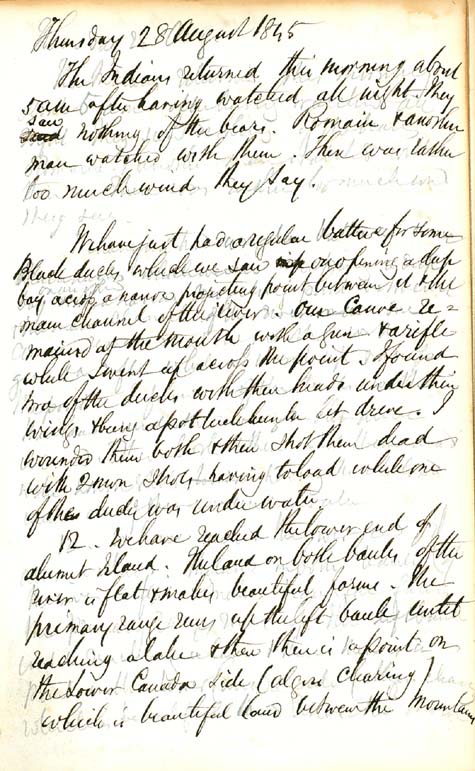 Thursday 28 August 1845
The Indians returned this morning about
5 am after having watched all night. They
saw
nothing of the bears. Romain & another
man watched with them. There was rather
too much wind they say.
We have just had a regular battue for some
Black ducks which we saw on opening a deep
bay across a narrow projecting point between it & the
main channel of the river. Our Canoe re=
mained at the mouth with a gun & a rifle
while I went up across the point. I found
two of the ducks with their heads under their
wings & being a pot luck hunter let drive. I
wounded them both & then shot them dead
with 2 more shots having to load while one
of the duck was under water.
12. We have reached the lower end of
alumet Island. The land on both banks of the
river is flat & makes beautiful farms. The
primary range runs up the left bank until
reaching a lake & then there is a point on
the Lower Canada side (a large clearing)
which is beautiful land between the mountains